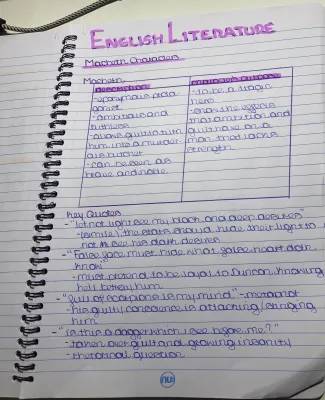 ENGLISH LITERATURE
Macbeth Characters
Macbeth
description
-eponymous prota
gonist
-ambitious and
ruthless
-allows guilt to turn
him into a murder-
ous butcher
-can be seen as
brave and noble
-to be a tragic
hero
-show the effects
that ambition and
guilt have on a
man that lacks
strength
Key Quotes
-"let not light see my black and deep desires"
-(simile) the stars should hide their light to
not to see his dark desires
-"False face must hide what false heart doth
know"
-must pretend to be loyal to Duncan, knowing
he'll betray him
-"full of scorpions is my mind" -metaphor
-his guilty conscience is attacking/stinging
him
-"is this a dagger which i see before me?"
-taken over guilt and growing insanity
-rhetorical question
nu: